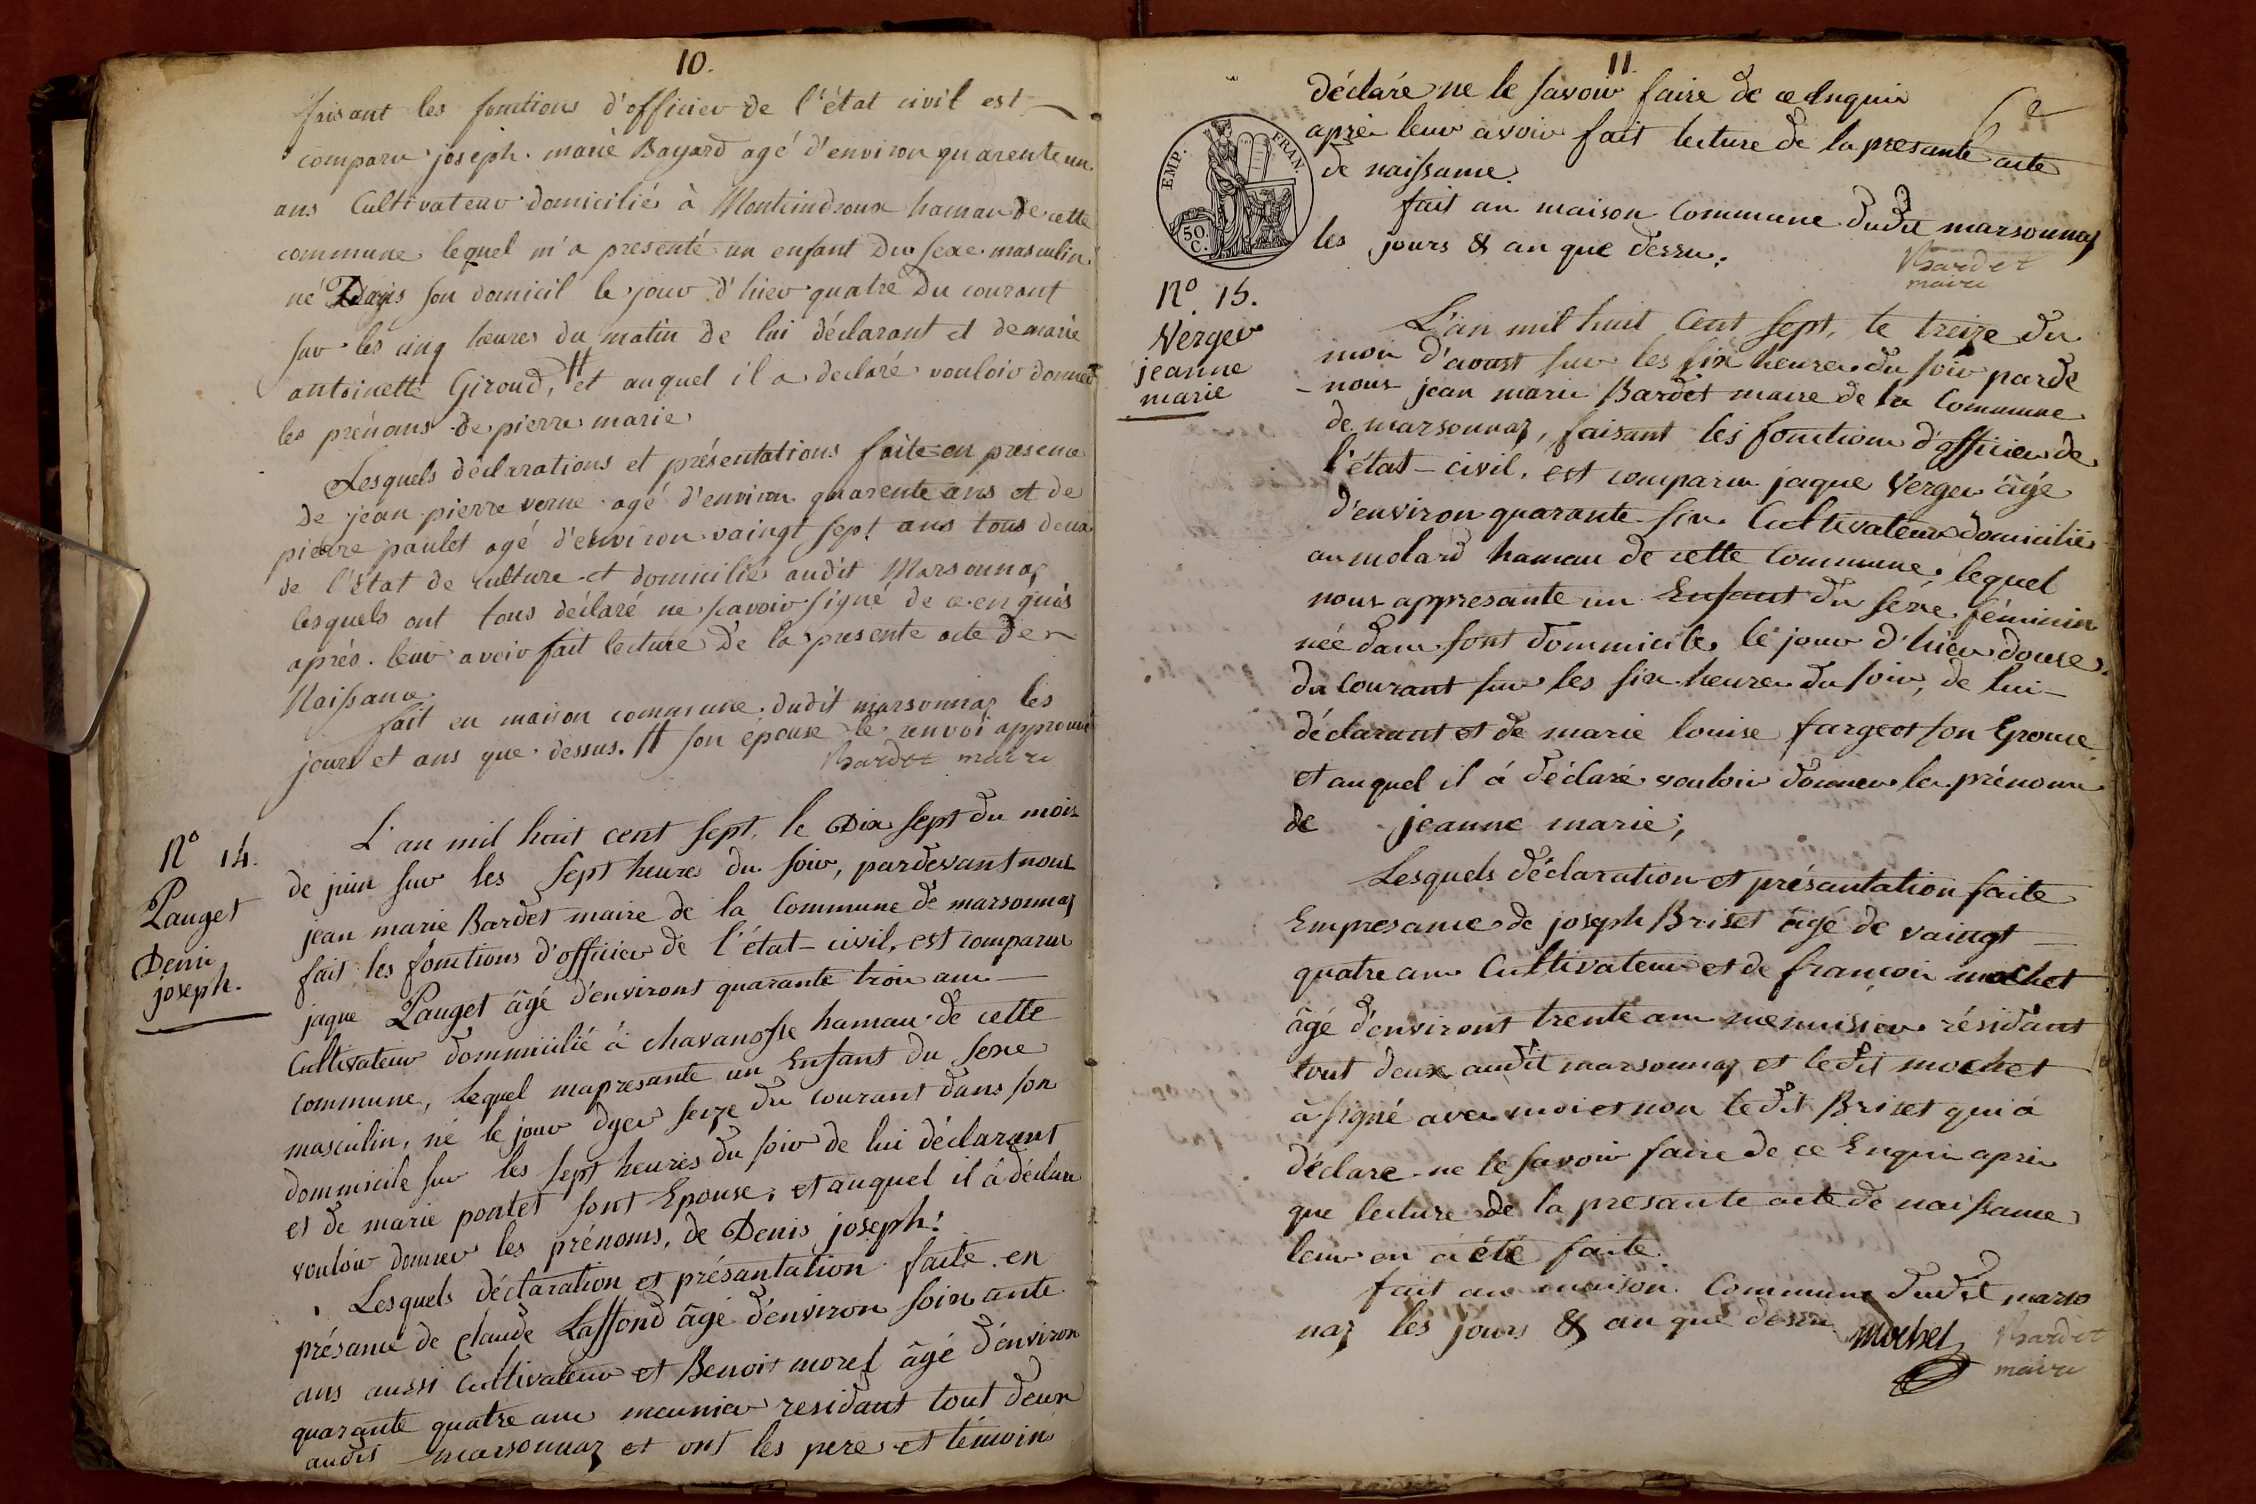 10.
faisant les fonctions d'officier de l'état civil est
comparu joseph. marie Bayard agé d'environ quarente un
ans Cultivateur domicilié à Monteindroux hamau de cette
commune lequel m'a presenté un enfant du sexe masculin
né Dans son domicil le jour d'hier quatre du courant
sur les cinq heures du matin de lui déclarant et de marie
antoinette Giroud, # et auquel il a declaré vouloir donner
les prénoms de pierre marie
Lesquels déclarations et présentations faite en presence
de jean pierre verne agé d'environ quarente ans et de
pierre paulet agé d'environ vaingt sept ans tous deux
de l'état de culture et domiciliés audit Marsonnaz
lesquels ont tous déclaré ne scavoir signé de ce enquis
aprés. leur avoir fait lecture de la presente acte de
Naissance
fait en maison commune dudit marsonnaz les
jours et ans que dessus. # son épouse le renvoi approuvé
Bardet maire
N° 14.
Pauget
Deni
joseph.
L'an mil huit cent sept, le Dix sept du mois
de juin sur les sept heures du soir, pardevant nous
jean marie Bardet maire de la Commune de marsonnaz
fait les fonctions d'officier de l'état-civil, est comparu
jaque Pauget âgé d'environt quarante trois ans
Cultivateur dommicilié à chavanosse hamau de cette
commune, Lequel mapresante un Enfant du sexe
masculin, né le jour dyer seize du courant dans son
dommicile sur les sept heures du soir de lui déclarant
et de marie pontet sont Epouse, et auquel il à déclare
vouloir donner les prénoms, de Denis joseph.
Lesquels déclaration et présantation faite en
présance de Claude Laffond âgé d'environ soixante
ans aussi Cultivateur et Benoit morel âgé d'environ
quarante quatre ans meunier residant tout deux
audit marsonnaz et ont les pere et témoin
11.
déclaré ne le savoir faire de ce Enquis
après leur avoir fait lecture de la presante acte
de naissance.
fait au maison Commune dudit marsonnaz
les jours & an que dessu.
Bardet
maire
EMP. FRAN.
50.
C.
N° 15.
Verger
jeanne
marie
L'an mil huit Cent sept, le treize du
mois d'aoust sur les six heures du soir parde
nous jean marie Bardet maire de la Commune
de marsonnaz, faisant les fonction d'officier de
l'état-civil, est comparu jaque Verger âgé
d'environ quarante six Cultivateur domicilié
au molard hamau de cette Commune, lequel
nous appresante un Enfant du sexe féminin
née dans sont dommicile le jour d'hier douse
du Courant sur les six heures du soir, de lui
déclarant et de marie louise fargeot son Epouse
et auquel il à déclaré vouloir donner les prénoms
de jeanne marie,
Lesquels déclaration et présantation faite
Empresance de joseph Briset âgé de vaingt
quatre ans Cultivateur et de françois mochet
âgé d'environt trente ans menuisier résidant
tout deux audit marsonnaz et ledit mochet
à signé avec moi et non ledit Briset qui à
déclare ne le savoir faire de ce Enquis après
que lecture de la presante acte de naissance
leur en à été faite.
fait au maison Commune dudit marso
naz les jours & an que dessu
mochet
Bardet
maire